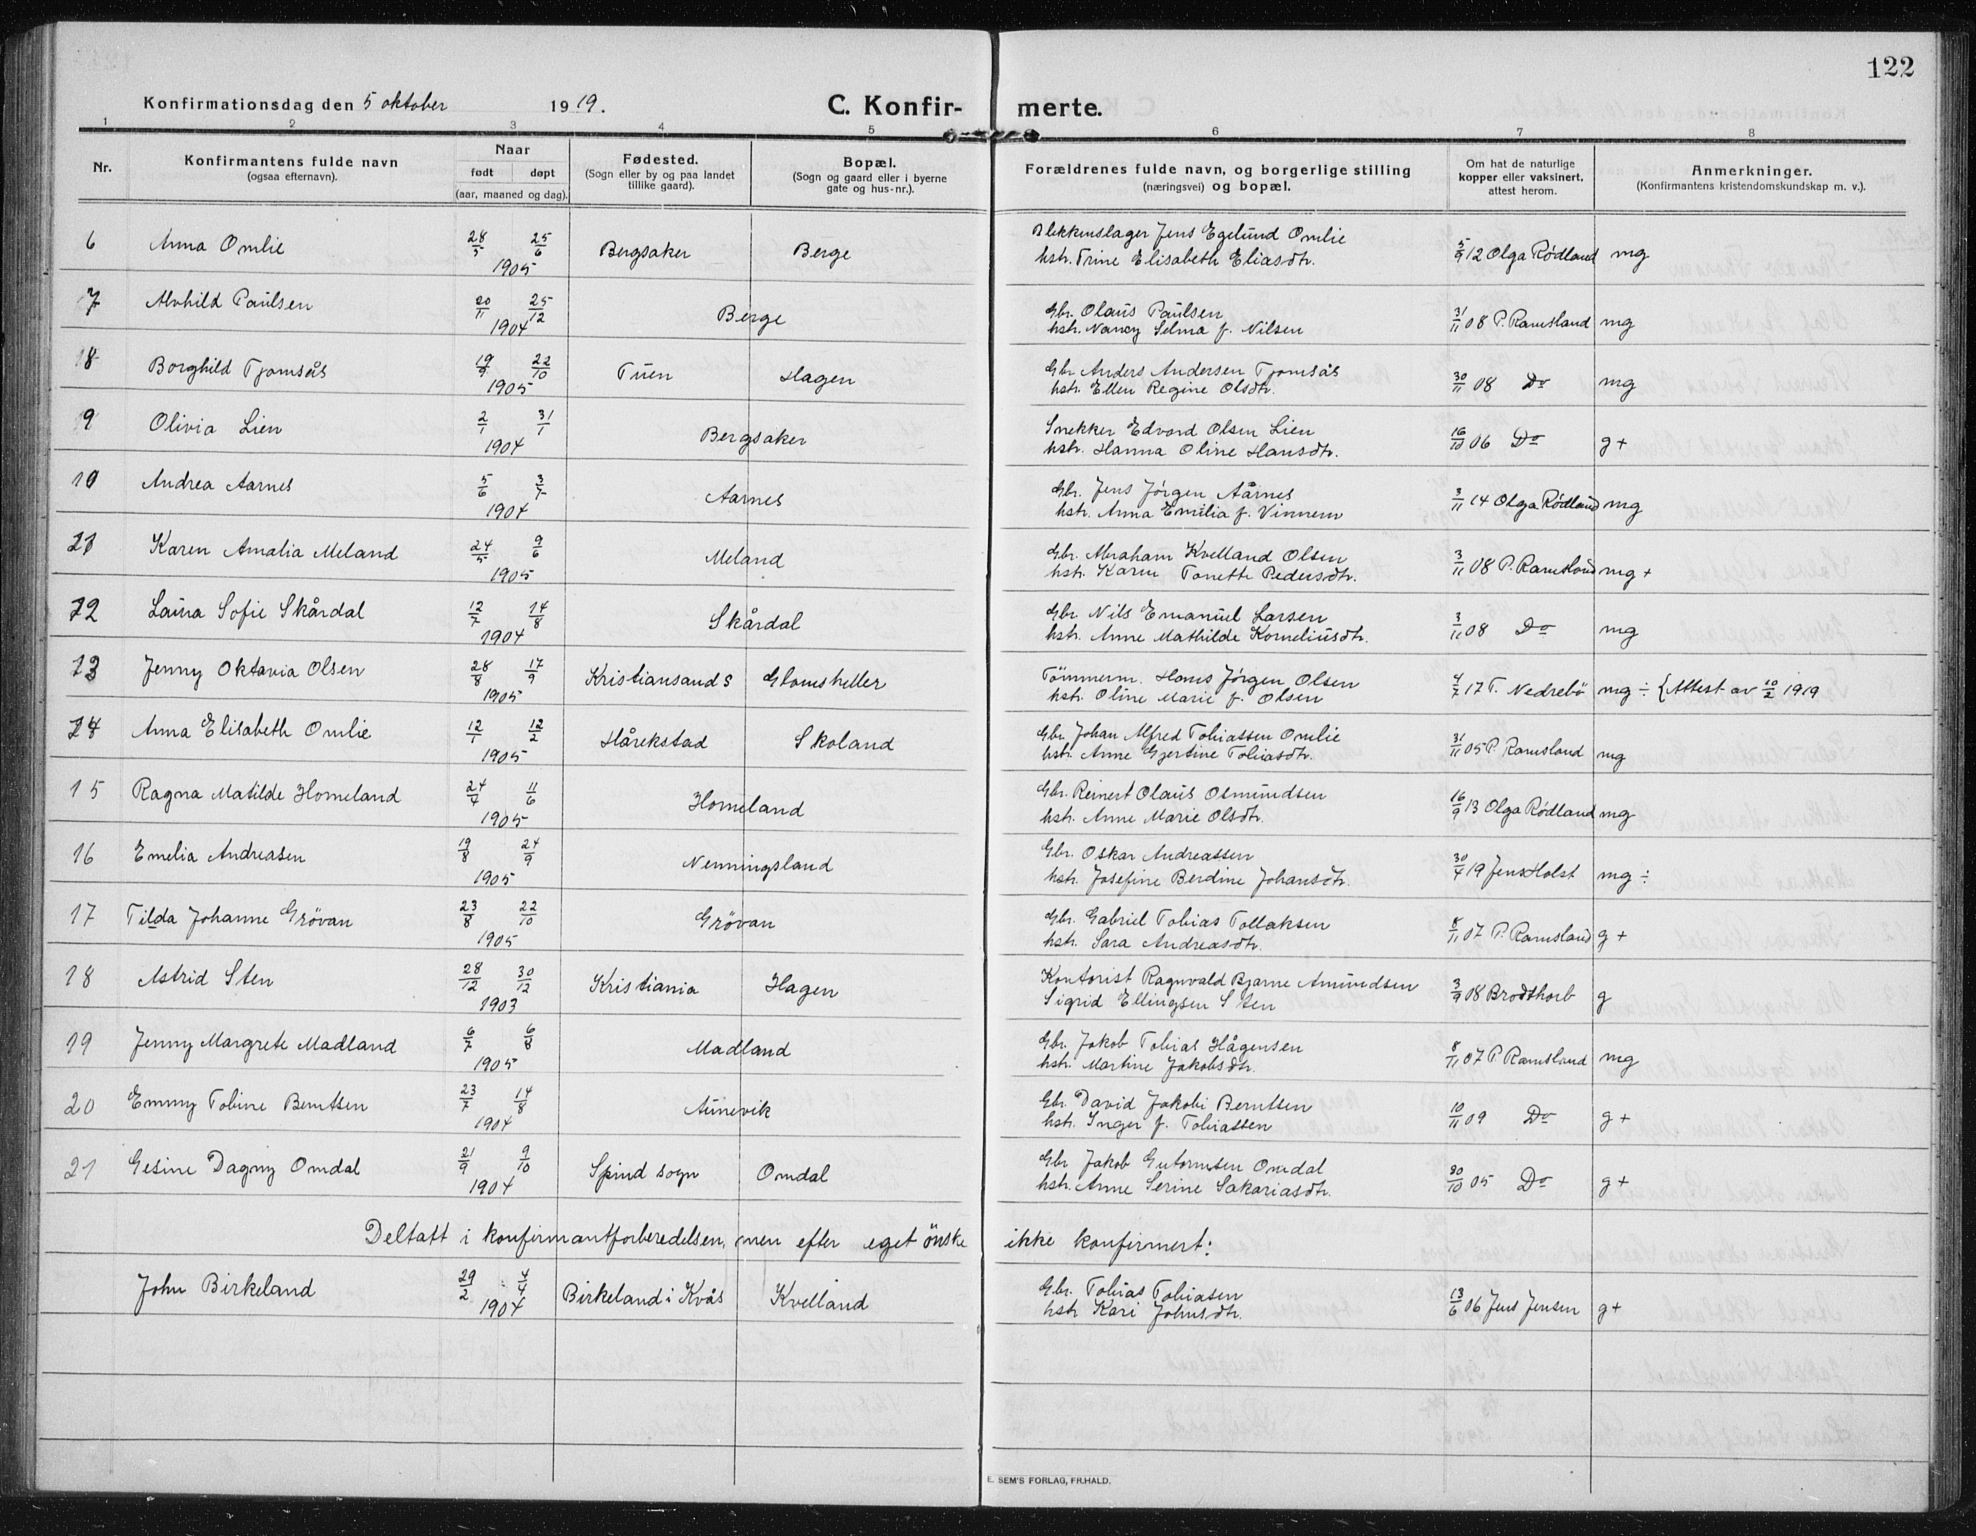 122
Konfirmationsdag den 5 oktober 1919.
C. Konfir- merte.
1 2 3 4 5 6 7 8
Nr. Konfirmantens fulde navn (ogsaa efternavn). Naar født døpt (aar, maaned og dag). Fødested. (Sogn eller by og paa landet tillike gaard). Bopæl. (Sogn og gaard eller i byerne gate og hus-nr.). Forældrenes fulde navn, og borgerlige stilling (næringsvei) og bopæl. Om hat de naturlige kopper eller vaksinert, attest herom. Anmerkninger. (Konfirmantens kristendomskundskap m. v.).
6 Anna Omlie 28/5 25/6 1905 Bergsaker Berge Blikkenslager Jens Egelund Omlie 5/9 12 Olga Rødland mg
hstr. Trine Elisabeth Eliasdtr.
7 Alvhild Paulsen 20/11 25/12 1904 Berge Gbr. Olaus Paulsen 31/11 08 P. Ramsland mg
hstr. Nancy Selma f. Nilsen
8 Borghild Tjomsås 19/9 22/10 1905 Tuen Hagen Gbr. Anders Andersen Tjomsås 30/11 08 Do mg
hstr. Ellen Regine Olsdtr.
9 Olivia Lien 2/1 31/1 1904 Bergsaker Snekker Edvard Olsen Lien 16/10 06 Do g+
hstr. Hanna Oline Hansdtr.
10 Andrea Aarnes 5/6 3/7 1904 Aarnes Gbr. Jens Jørgen Aårnes 3/11 14 Olga Rødland mg
hstr. Anna Emilia f. Vinnem
11 Karen Amalia Meland 24/5 9/6 1905 Meland Gbr. Abraham Kvelland Olsen 3/11 08 P. Ramsland mg+
hstr. Karen Tonette Pedersdtr.
12 Laura Sofie Skårdal 12/7 14/8 1904 Skårdal Gbr. Nils Emanuel Larsen 3/11 08 Do mg
hstr. Anne Mathilde Korneliusdtr.
13 Jenny Oktavia Olsen 28/8 17/9 1905 Kristiansands Glomsheller Tömmerm. Hans Jørgen Olsen 4/7 17 T. Nedrebö mg ÷ {Attest av 10/2 1919
hstr. Oline Marie f. Olsen
14 Anna Elisabeth Omlie 12/1 12/2 1905 Hårekstad Skoland Gbr. Johan Alfred Tobiassen Omlie 31/11 05 P. Ramsland mg
hstr. Anne Gjertine Tobiasdtr.
15 Ragna Matilde Homeland 24/4 11/6 1905 Homeland Gbr. Reinert Olaus Osmundsen 16/9 13 Olga Rødland mg
hstr. Anne Marie Olsdtr.
16 Emelia Andreasen 19/8 24/9 1905 Nenningsland Gbr. Oskar Andreassen 30/4 19 Jens Holst mg ÷
hstr. Josefine Berdine Johansdtr.
17 Tilda Johanne Grövan 23/8 22/10 1905 Grövan Gbr. Gabriel Tobias Tollaksen 8/11 07 P. Ramsland g+
hstr. Sara Andreasdtr.
18 Astrid Sten 28/12 30/12 1903 Kristiania Hagen Kontorist Ragnvald Bjarne Amundsen 3/9 08 Brodthorb g
Sigrid Ellingsen Sten
19 Jenny Margrete Madland 6/7 6/8 1905 Madland Gbr. Jakob Tobias Hågensen 8/11 07 P. Ramsland mg
hstr. Martine Jakobsdtr.
20 Emmy Tobine Berntsen 23/7 14/8 1904 Aunevik Gbr. David Jakobi Berntsen 10/11 09 Do g+
hstr. Inger f. Tobiassen
21 Gesine Dagny Omdal 21/9 9/10 1904 Spind sogn Omdal Gbr. Jakob Gutormsen Omdal 30/10 05 Do g+
hstr. Anne Serine Sakariasdtr.
Deltatt i konfirmantforberedelsen, men efter eget önske ikke konfirmert:
John Birkeland 29/2 4/4 1904 Birkeland i Kvås Kvelland Gbr. Tobias Tobiasen 13/6 06 Jens Jensen g+
hstr Kari Johnsdtr.
E. SEM'S FORLAG, FR.HALD.